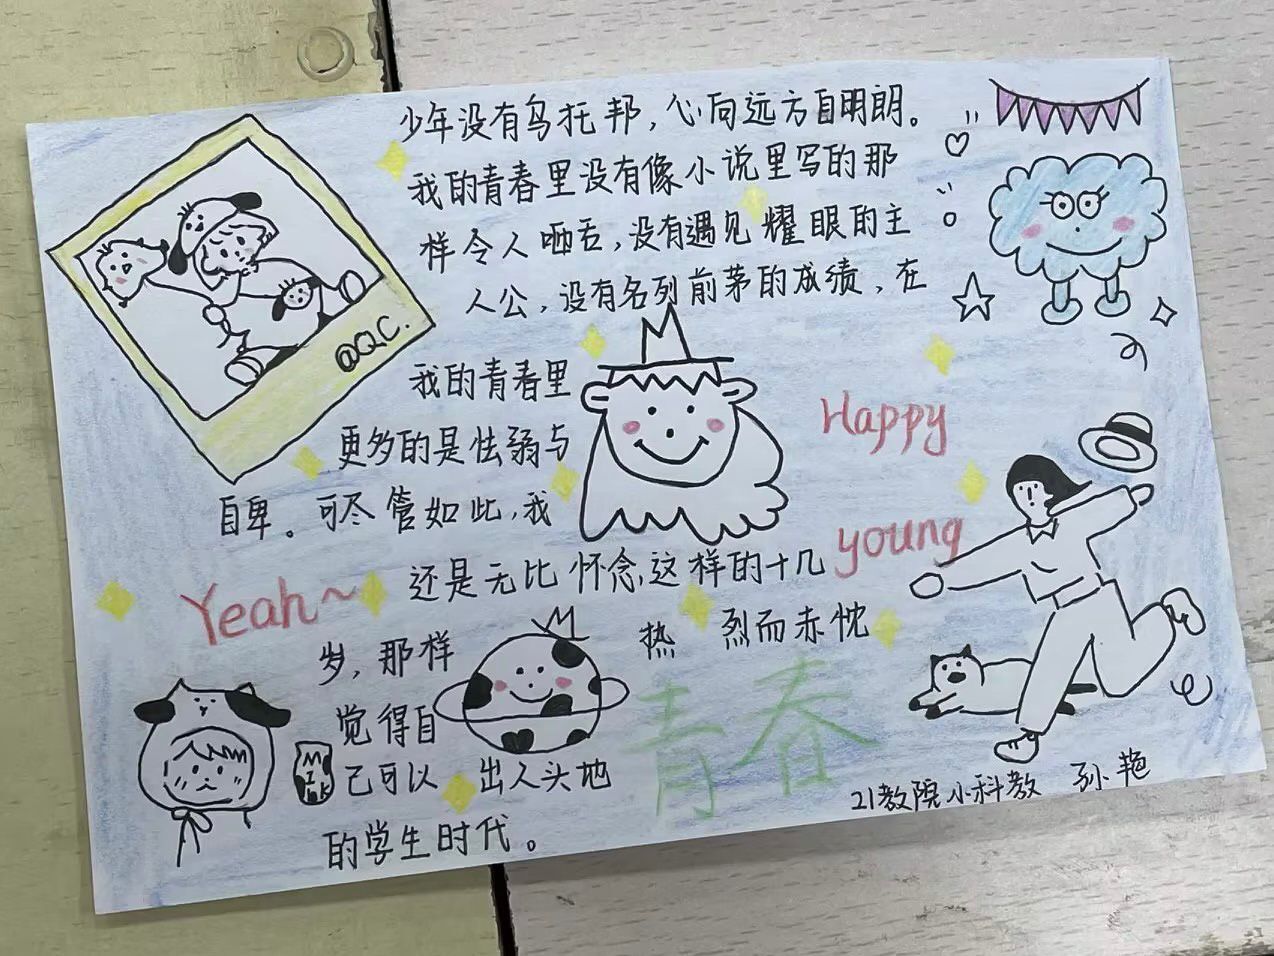 少年没有乌托邦，心向远方自明朗。
我的青春里没有像小说里写的那
样令人咂舌，没有遇见耀眼的主
人公，没有名列前茅的成绩，在
@QC.
我的青春里
更多的是怯弱与
自卑。可尽管如此，我
Happy
young
还是无比怀念，这样的十几
Yeah~
岁，那样 热 烈而赤忱
觉得自
己可以 出人头地
的学生时代。
Milk
青春
21教院小科教 孙艳